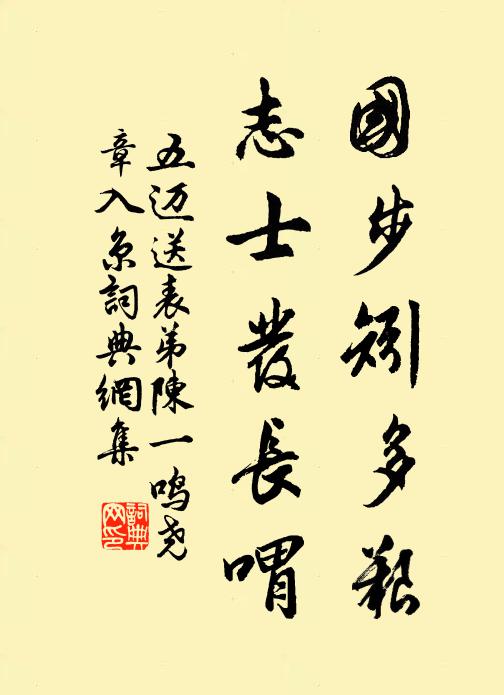 國步矧多艱
志士發長喟
五迈送表弟陳一鳴堯
章入京詞典網集
詞典
网印